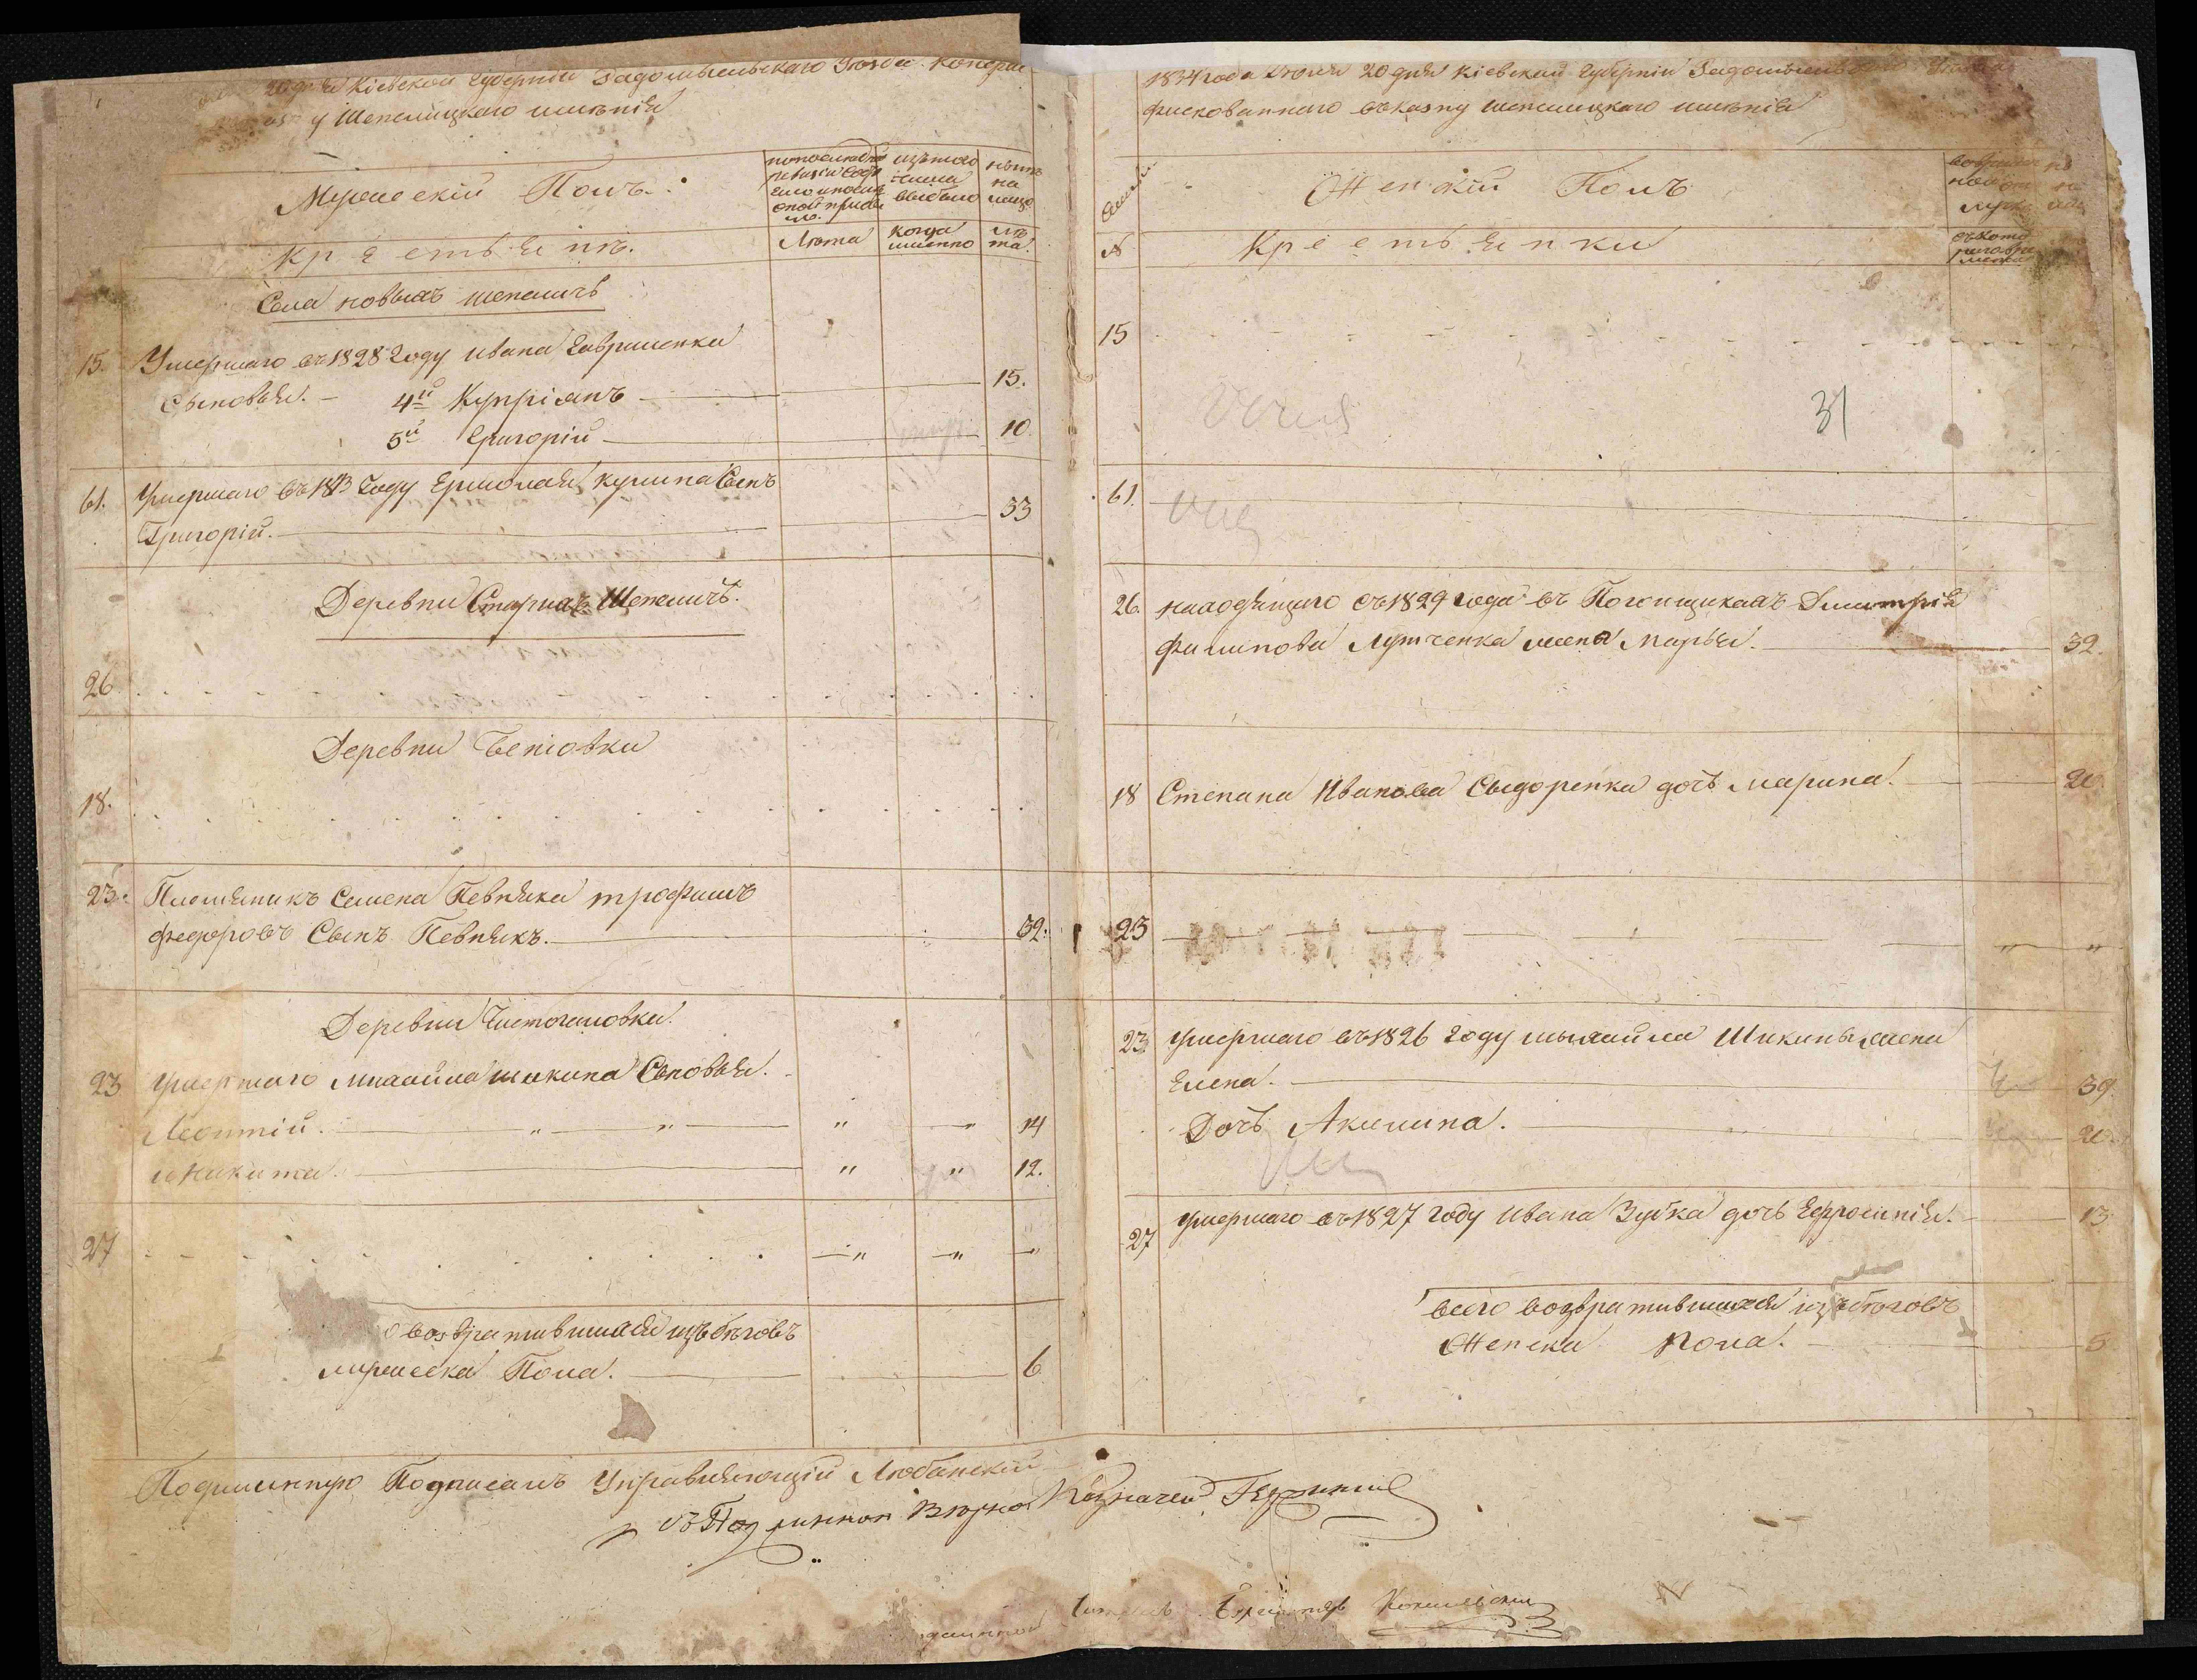 20 дня Кіевской Губерніи Радомысльскаго Уѣзда Конфи
у Шепелицкаго имѣнія
Мужескій Полъ.
по последней ревизіи состояло и после оной прибыло
изъ того числа выбыло
нынѣ на лицо
Крестьянъ.
Лѣта
когда именно
лѣта
Села новыхъ шепеличъ
15. Умершаго въ 1828 году Ивана Гавриленка
Сыновья. - 4й Купріянъ 15.
5й Григорій 10.
61. Умершаго въ 1813 году Ермолая кушна Сынъ
Григорій. 33
Деревни Старыхъ Шепеличъ.
26
Деревни Беніовки
18.
23. Племяникъ Семена Певняка трофимъ
федоровъ Сынъ Певнякъ. 32.
Деревни Чистогаловки.
23 Умершаго михайла шикина Сыновья.
Леонтій. " " " " 14
и Никита. " " 12.
27 " " "
возвратившихся изъ бѣговъ
мужеска Пола. 6.
1834 года Іюня 20 дня Кіевской Губерніи Радомысльскаго Уѣзда
фискованнаго въ казну шепелицкаго имѣнія
Женскій Полъ
№ Крестьянки
15
31
61.
26. находящаго съ 1829 года въ Погонщикахъ Дмитрія
филипова Лутченка жена Марья. 32.
18 Степана Иванова Сыдоренка дочь марина. 20
23 " "
23 Умершаго въ 1826 году мыхайла Шикины жена
Елена. 39.
Дочь Акилина. 20.
27 Умершаго въ 1827 году Ивана Зубка дочь Ефросинія. 13
всего возвратившихся изъ бѣговъ
Женска пола. 5
Подлинную Подписалъ Управляющій Любанскій
съ Подлинной Вѣрно Казначей
Кониевскій